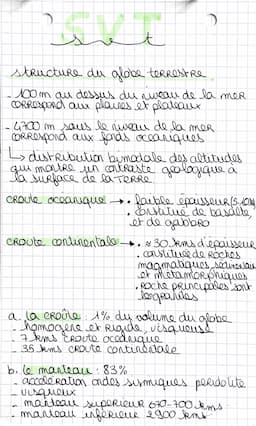 SVT
svt
structure du globe terrestre
- 100m au dessus du niveau de la mer
correspond aux plaines et plateaux
- 4700 m sous le niveau de la mer
correspond aux fonds océaniques
↳ distribution bimodale des altitudes
qui montre un contraste géologique à
la surface de la Terre
croute océanique → • faible épaisseur
• constitué de basalte,
et de gabbro
croute continentale → • ≈ 30 kms d'épaisseur
• constituée de roches
magmatiques,
et métamorphiques
• roche principales sont
a. la croûte : 1% du volume du globe
- homogène et rigide, visqueuse
- 7 kms croute océanique
- 35 kms croute continentale
b. le manteau : 83%
- accélération ondes sismiques péridotite
- visqueux
- manteau supérieur 670-700 kms
- manteau inférieur 2900 kms